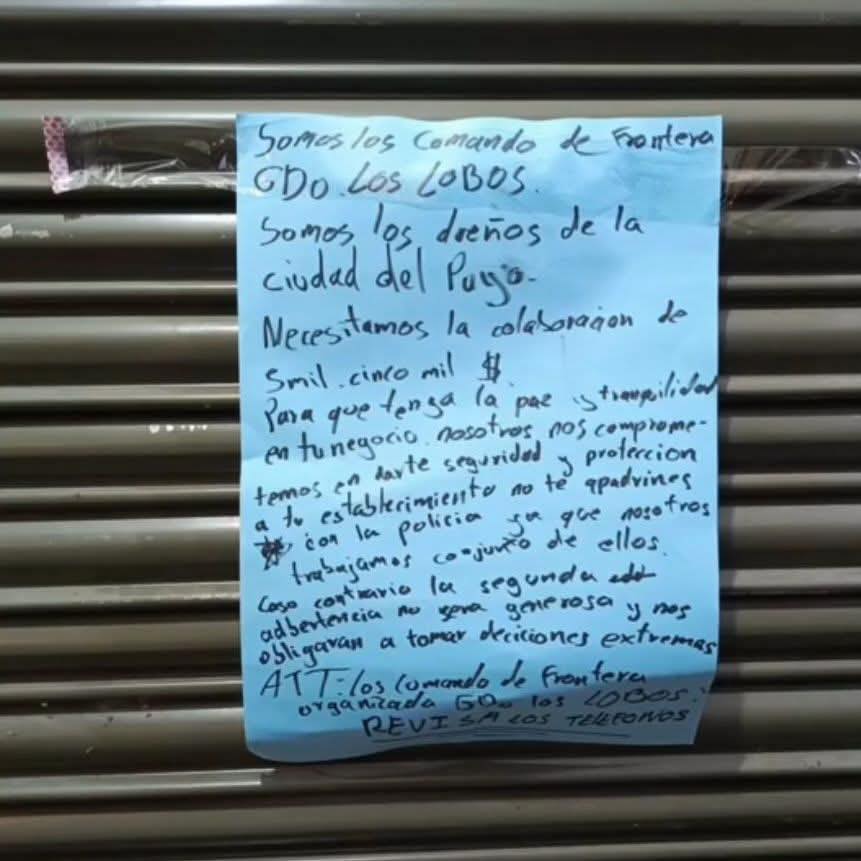 Somos los Comando de Frontera
GDO. LOS LOBOS.
Somos los dueños de la
ciudad del Puyo.
Necesitamos la colaboracion de
5mil. cinco mil $
Para que tenga la paz y tranquilidad
en tu negocio. nosotros nos comprome-
temos en darte seguridad y proteccion
a tu establecimiento no te apadrines
con la policia ya que nosotros
trabajamos conjunto de ellos.
Caso contrario la segunda
adbertencia no sera generosa y nos
obligaran a tomar deciciones extremas
ATT: los Comando de Frontera
organizada GDO los LOBOS.
REVISA LOS TELEFONOS